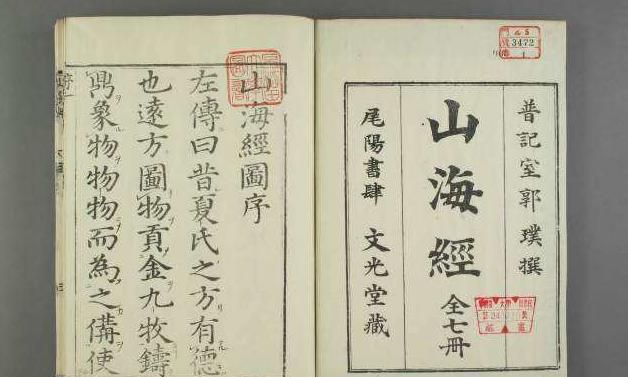 普記室郭璞撰
山海經
全七冊
尾陽書肆 文光堂藏
3472
1
山海經圖序
左傳曰昔夏氏之方有德
也遠方圖物貢金九牧鑄
鼎象物物物而為之備使
序